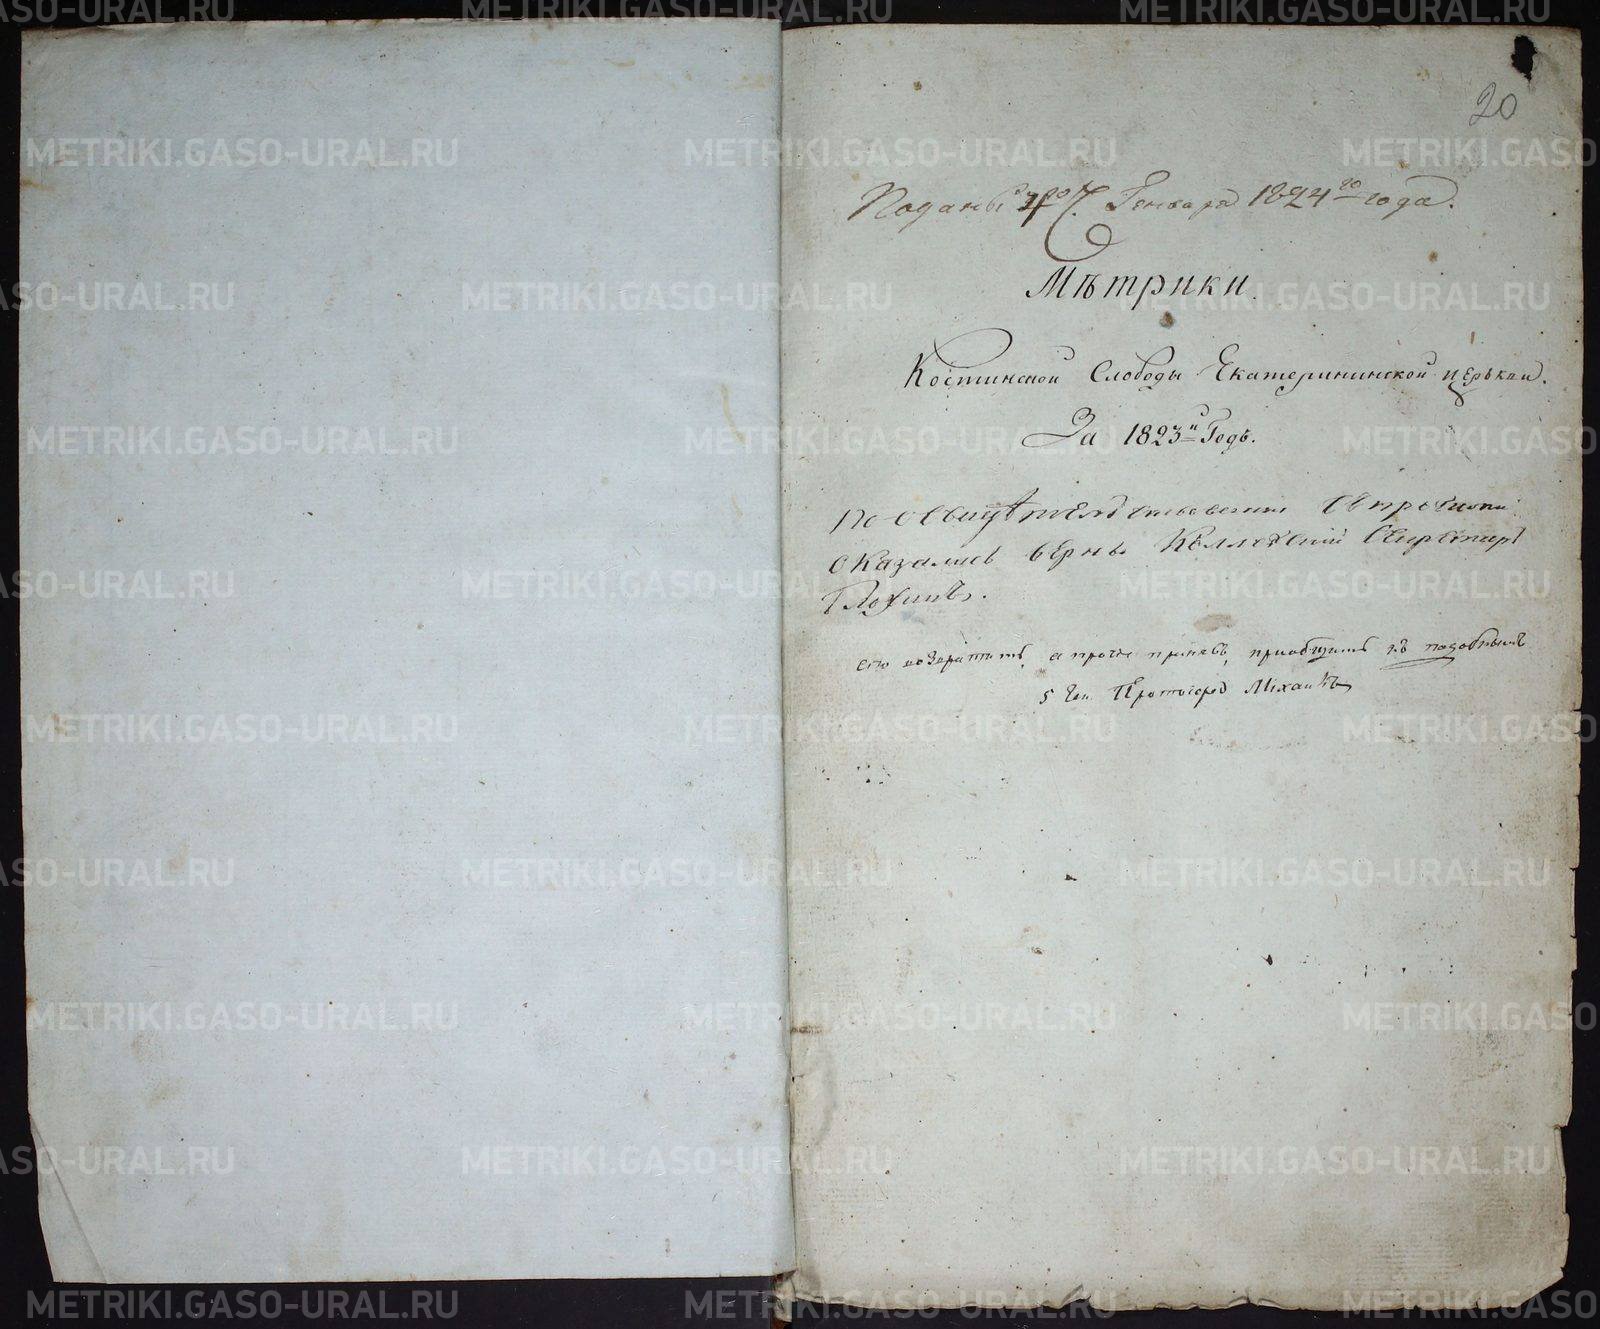 20
Поданы Генваря 1824го года.
Мѣтрики.
Костинской Слободы Екатерининской церькви.
За 1823й Годъ.
По освидѣтельствовании
оказались верны Коллежский Секретарь
сію возвратить, а прочіе принявъ, приобщить къ подобнымъ
5 Ген. Протоіерей Міхаилъ
METRIKI.GASO-URAL.RU